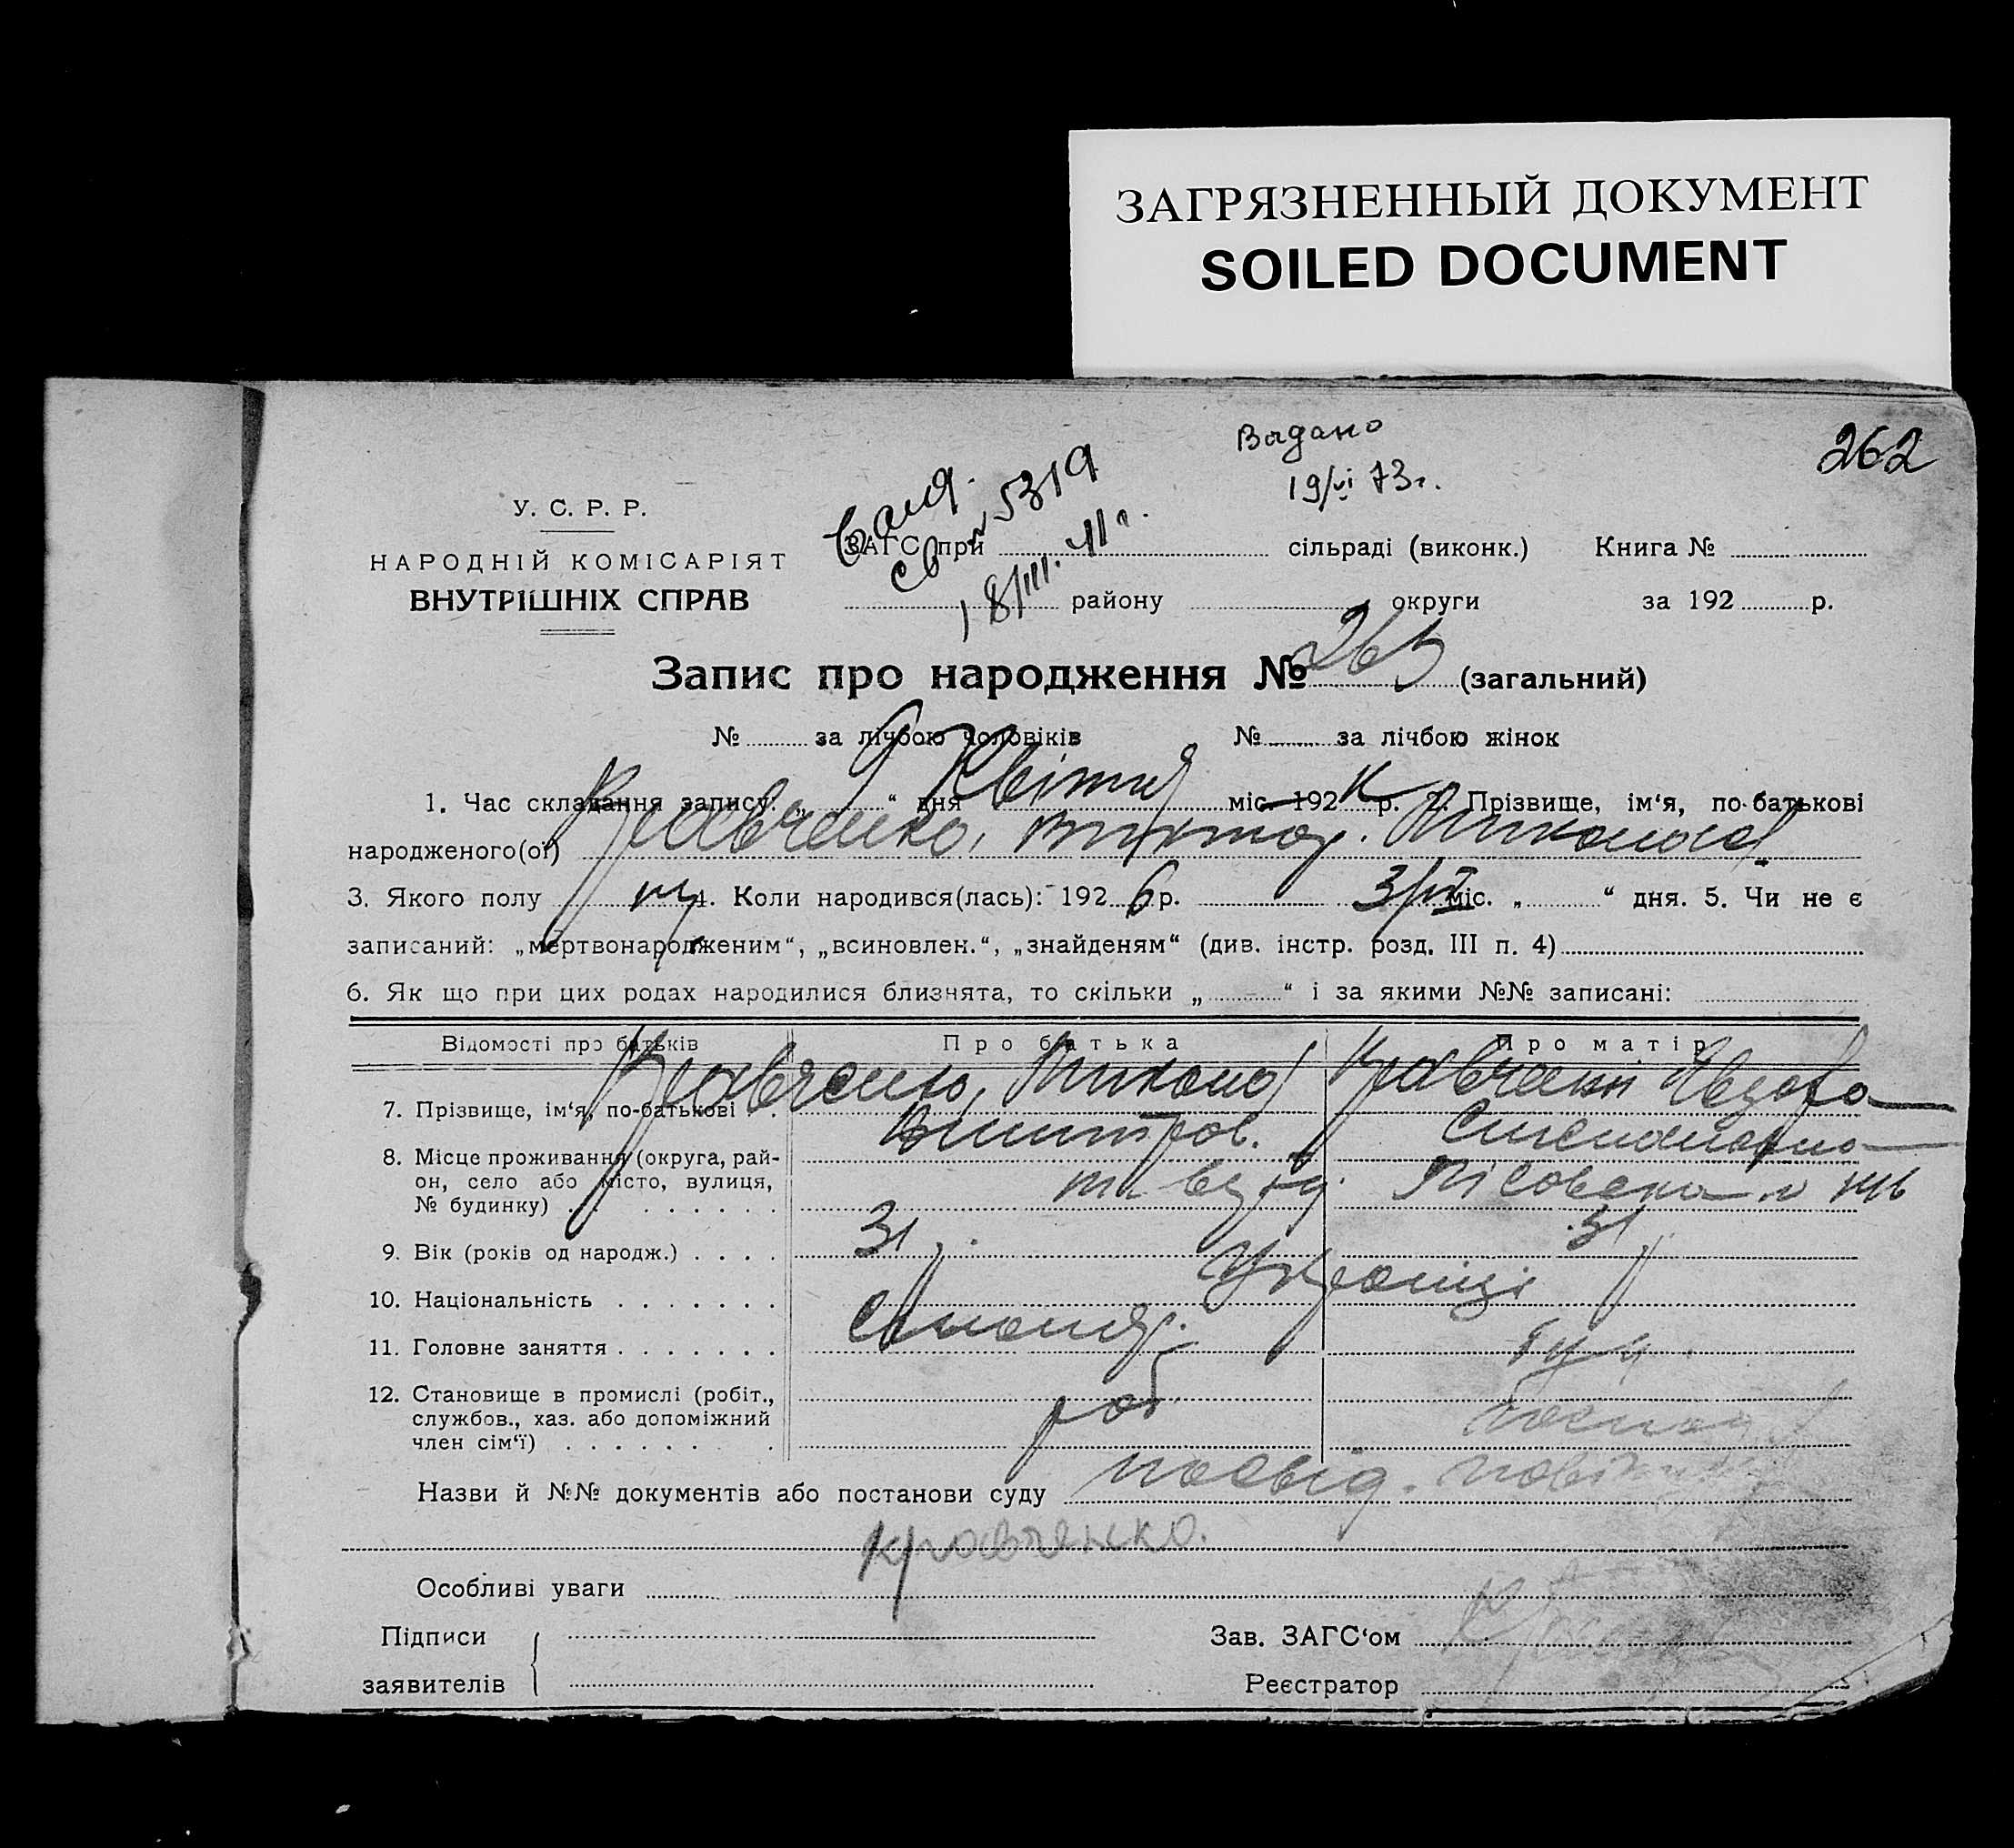 ЗАГРЯЗНЕННЫЙ ДОКУМЕНТ
SOILED DOCUMENT
Видано
19/VI 73г.
262
№ 5319
18/III.
У. С. Р. Р.
НАРОДНІЙ КОМІСАРІЯТ
ВНУТРІШНІХ СПРАВ
ЗАГС при сільраді (виконк.) Книга №
району округи за 192 р.
Запис про народження № 265 (загальний)
№ за лічбою чоловіків № за лічбою жінок
1. Час складання запису: „ 9 “ дня Квітня міс. 192 р. 2. Прізвище, ім‘я, по-батькові
народженого(ої) Кравченко, Виктор. Миколов
3. Якого полу м 4. Коли народився(лась): 192 6 р. 3/IV міс. „ “ дня. 5. Чи не є
записаний: „мертвонародженим“, „всиновлен.“, „знайденям“ (див. інстр. розд. III п. 4)
6. Як що при цих родах народилися близнята, то скільки „ “ і за якими №№ записані:
Відомості про батьків Про батька Про матір
7. Прізвище, ім‘я, по-батькові Кравченко, Микола Кравченко Явдоха
8. Місце проживання (округа, рай-
он, село або місто, вулиця,
№ будинку)
9. Вік (років од народж.) 31 р. 31 р.
10. Національність Українці
11. Головне заняття
12. Становище в промислі (робіт.,
службов., хаз. або допоміжний
член сім‘ї) роб.
Назви й №№ документів або постанови суду посвід.
Кравченко.
Особливі уваги
Підписи Зав. ЗАГС‘ом
заявителів Реєстратор